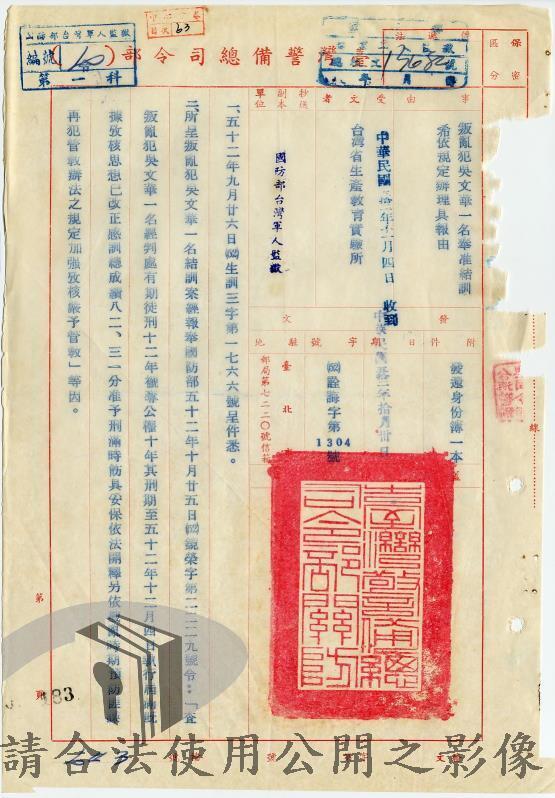 國防部台灣軍人監獄
編號
第一科
頁次 63
台灣警備總司令部
保密區分
事由
叛亂犯吳文華一名奉准結訓
希依規定辦理具報由
受文者
台灣省生產教育實驗所
副本
抄送單位
國防部台灣軍人監獄
收到
發文
附件
發還身份簿一本
日期
字號
第1304號
駐地
臺北
郵局第七二二〇號信箱
台灣警備總司令部關防
一、五十二年九月廿六日生訓三字第一七六六號呈件悉。
二、所呈叛亂犯吳文華一名結訓案經報奉國防部五十二年十月廿五日字第二二二九號令：「查
叛亂犯吳文華一名經判處有期徒刑十二年褫奪公權十年其刑期至五十二年十二月四日執行屆滿既
據攷核思想已改正感訓總成績八二、三一分准予刑滿時飭具安保依法開釋另依戡亂時期預防匪諜
再犯管教辦法之規定加強攷核嚴予管教」等因。
線
第
頁
383
請合法使用公開之影像